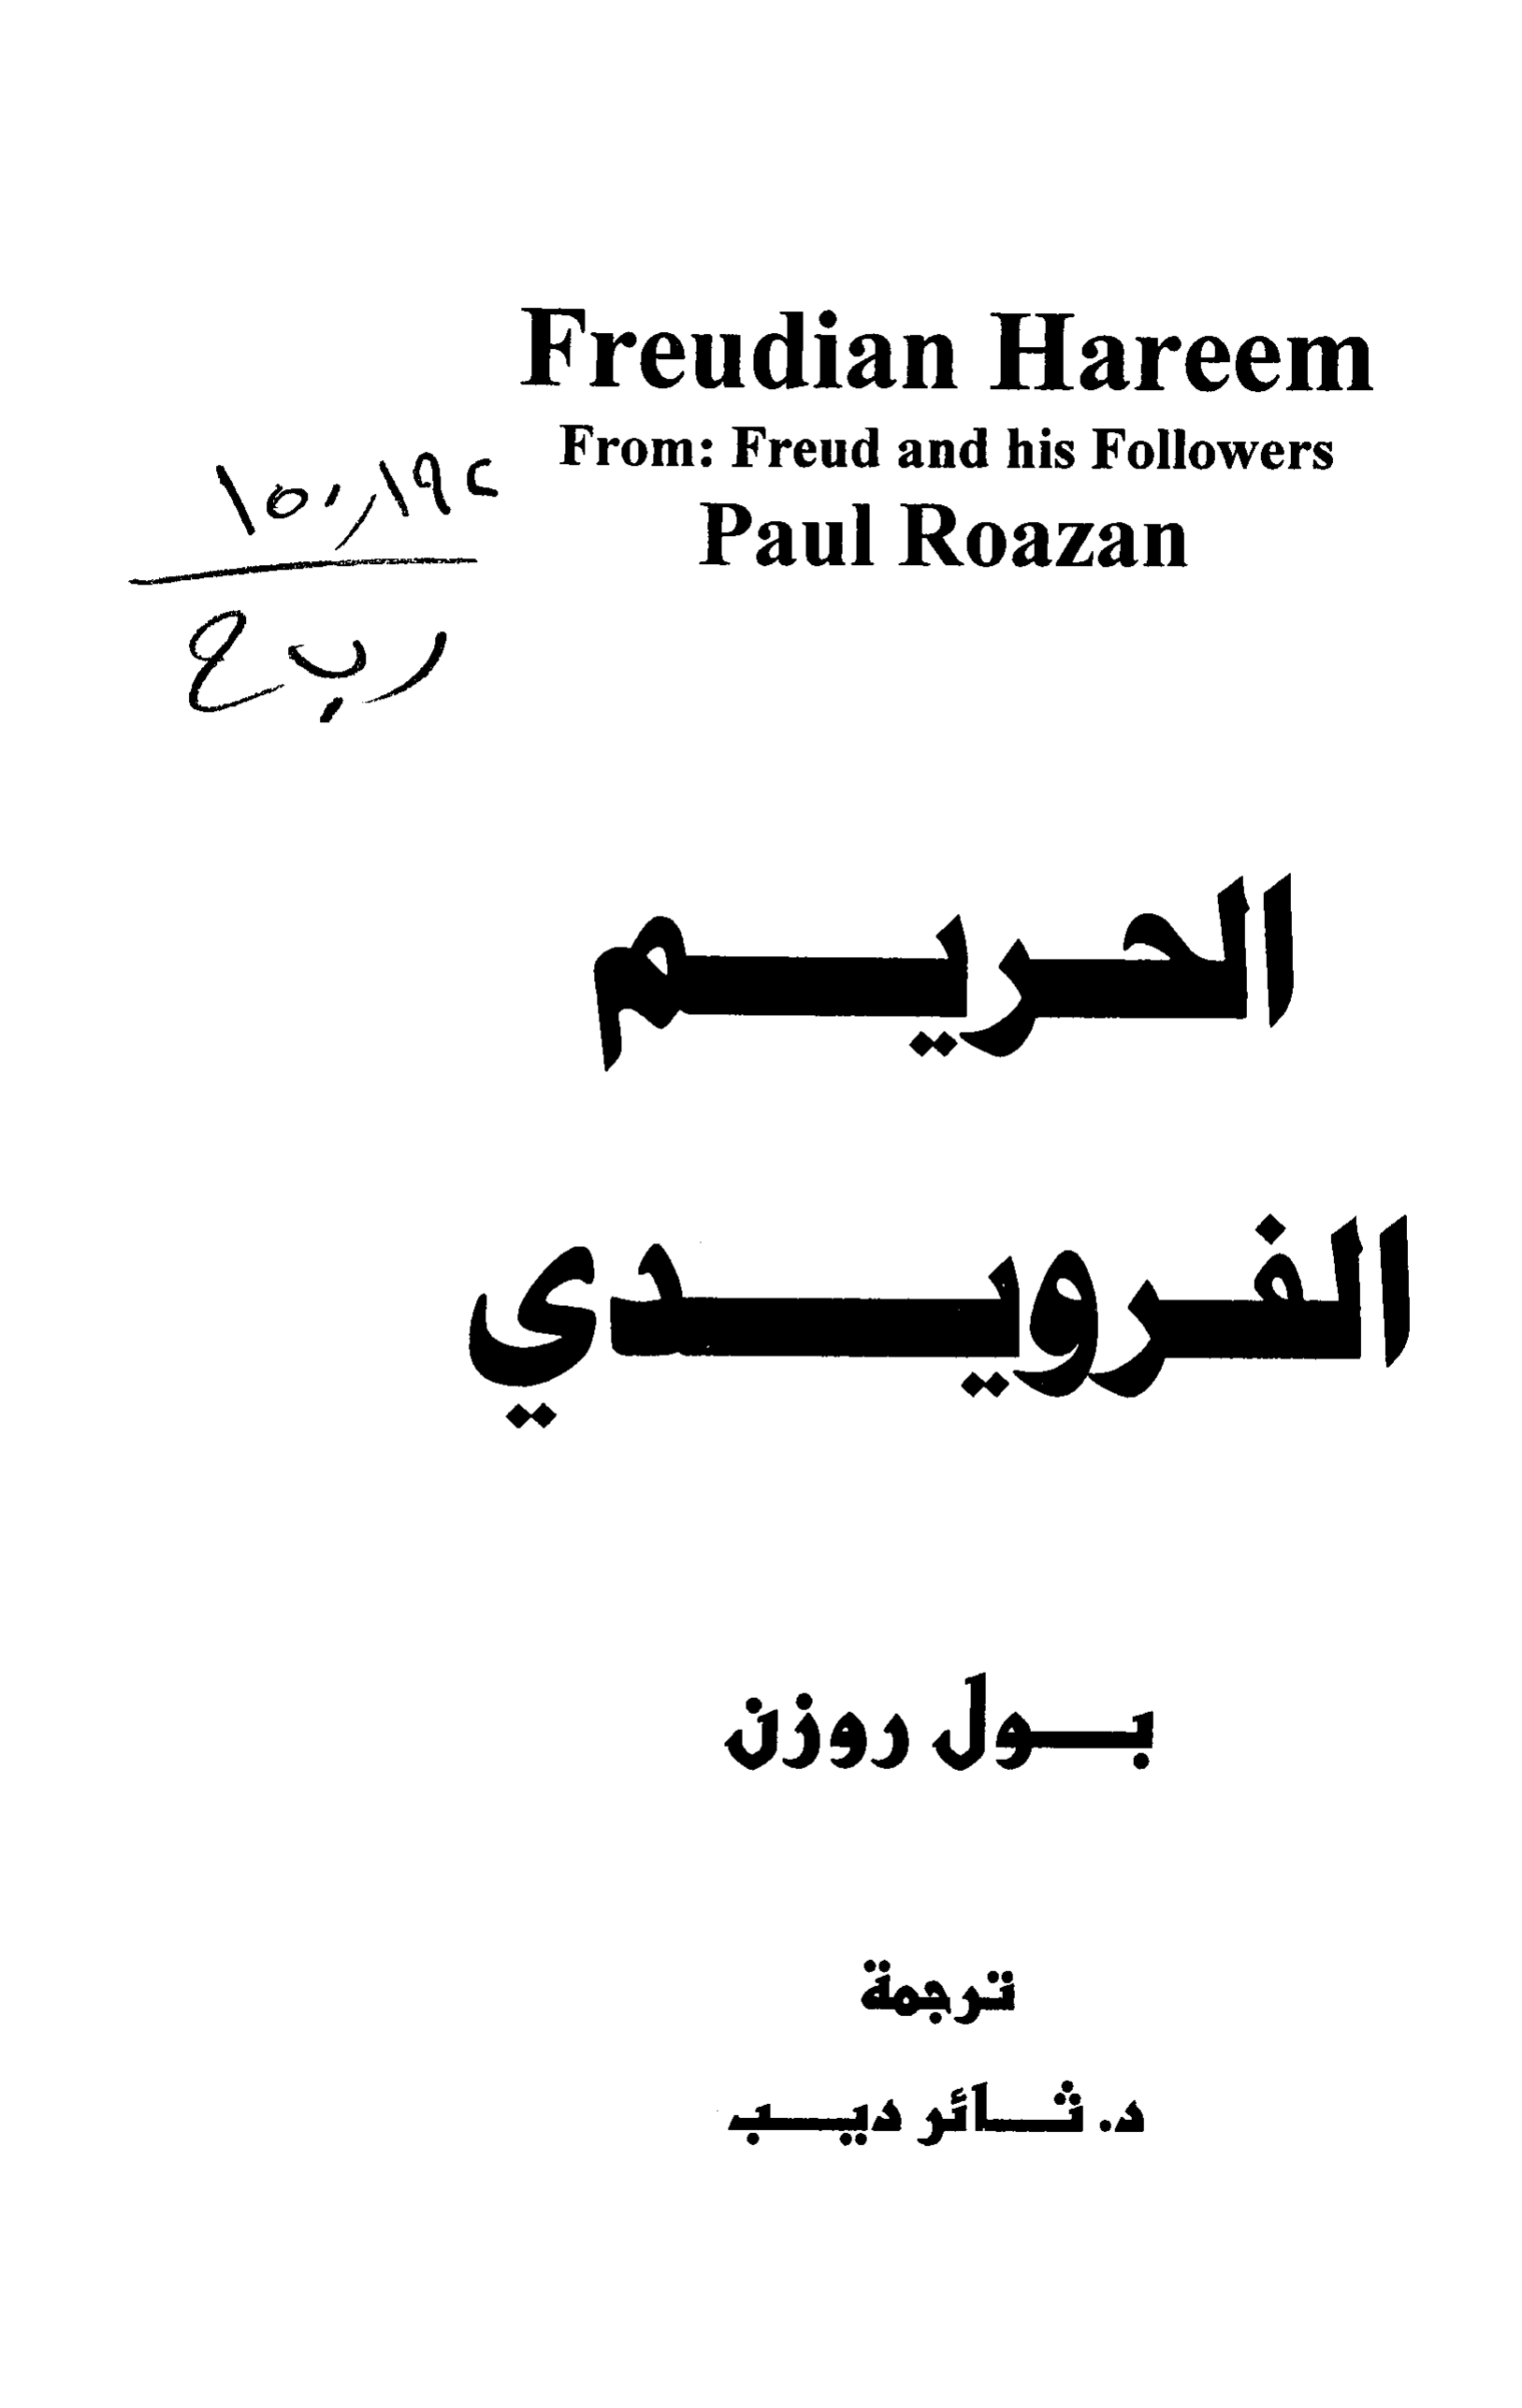 Freudian Hareem
From: Freud and his Followers
Paul Roazan
الحريم
الفرويدي
بول روزن
ترجمة
د. ثائر ديب